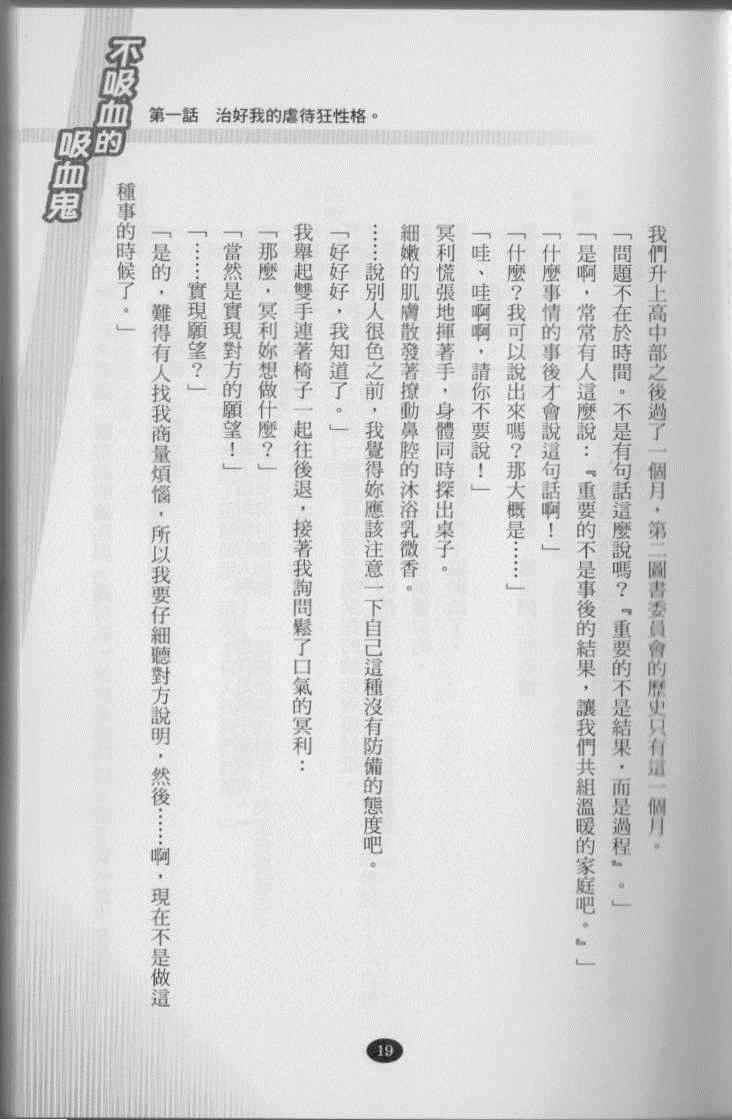 不吸血的
吸血鬼
第一話　治好我的虐待狂性格。
我們升上高中部之後過了一個月，第二圖書委員會的歷史只有這一個月。
「問題不在於時間。不是有句話這麼說嗎？『重要的不是結果，而是過程』。」
「是啊，常常有人這麼說：『重要的不是事後的結果，讓我們共組溫暖的家庭吧。』」
「什麼事情的事後才會說這句話啊！」
「什麼？我可以說出來嗎？那大概是……」
「哇、哇啊啊，請你不要說！」
冥利慌張地揮著手，身體同時探出桌子。
細嫩的肌膚散發著撩動鼻腔的沐浴乳微香。
……說別人很色之前，我覺得妳應該注意一下自己這種沒有防備的態度吧。
「好好好，我知道了。」
我舉起雙手連著椅子一起往後退，接著我詢問鬆了口氣的冥利：
「那麼，冥利妳想做什麼？」
「當然是實現對方的願望！」
「……實現願望？」
「是的，難得有人找我商量煩惱，所以我要仔細聽對方說明，然後……啊，現在不是做這
種事的時候了。」
19